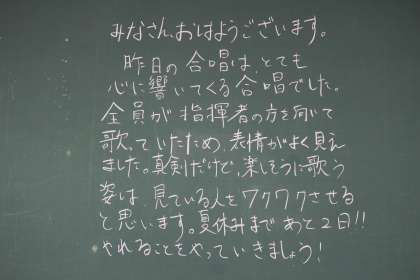 みなさん、おはようございます。
昨日の合唱は、とても
心に響いてくる合唱でした。
全員が指揮者の方を向いて
歌っていたため、表情がよく見え
ました。真剣だけど、楽しそうに歌う
姿は、見ている人をワクワクさせる
と思います。夏休みまであと2日!!
やれることをやっていきましょう!